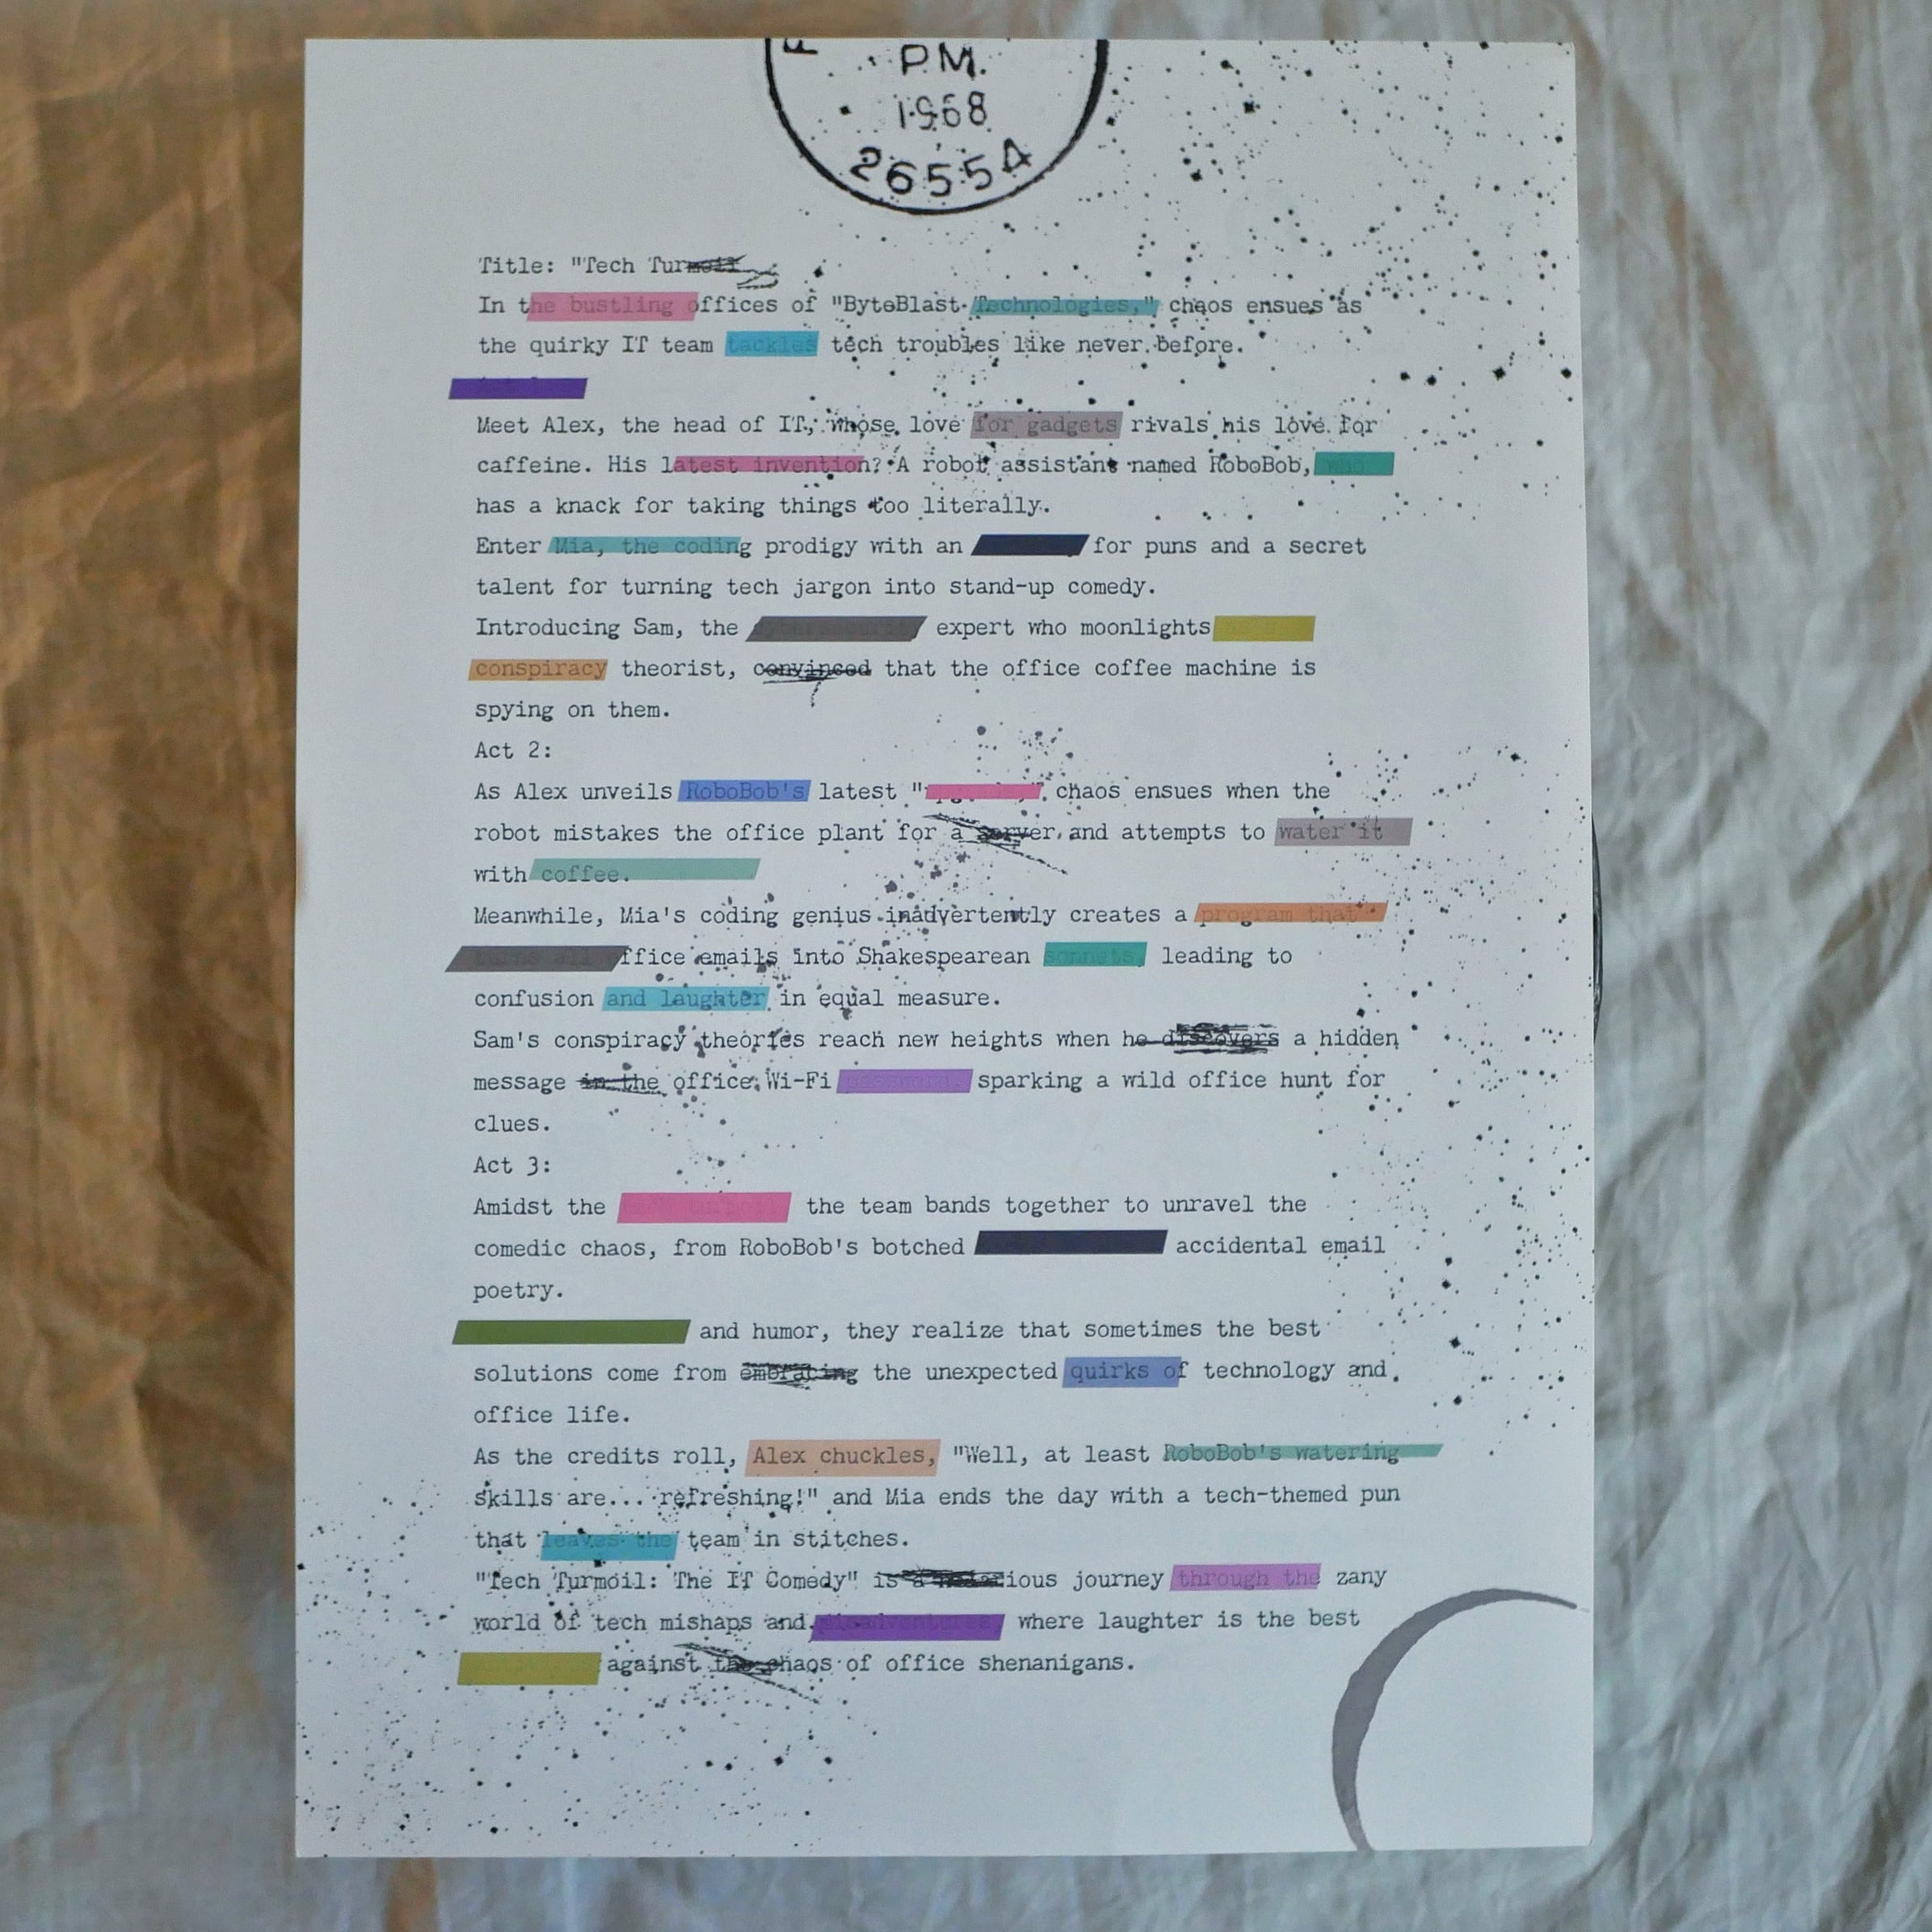 P.M.
1968
26554
Title: "Tech Turmoil
In the bustling offices of "ByteBlast Technologies," chaos ensues as
the quirky IT team tackles tech troubles like never before.
Meet Alex, the head of IT, whose love for gadgets rivals his love for
caffeine. His latest invention? A robot assistant named RoboBob, who
has a knack for taking things too literally.
Enter Mia, the coding prodigy with an for puns and a secret
talent for turning tech jargon into stand-up comedy.
Introducing Sam, the expert who moonlights
conspiracy theorist, convinced that the office coffee machine is
spying on them.
Act 2:
As Alex unveils RoboBob's latest " chaos ensues when the
robot mistakes the office plant for a server and attempts to water it
with coffee.
Meanwhile, Mia's coding genius inadvertently creates a program that
turns all office emails into Shakespearean sonnets, leading to
confusion and laughter in equal measure.
Sam's conspiracy theories reach new heights when he discovers a hidden
message in the office Wi-Fi password, sparking a wild office hunt for
clues.
Act 3:
Amidst the the team bands together to unravel the
comedic chaos, from RoboBob's botched accidental email
poetry.
and humor, they realize that sometimes the best
solutions come from embracing the unexpected quirks of technology and
office life.
As the credits roll, Alex chuckles, "Well, at least RoboBob's watering
skills are... refreshing!" and Mia ends the day with a tech-themed pun
that leaves the team in stitches.
"Tech Turmoil: The IT Comedy" is a hilarious journey through the zany
world of tech mishaps and misadventures, where laughter is the best
against the chaos of office shenanigans.